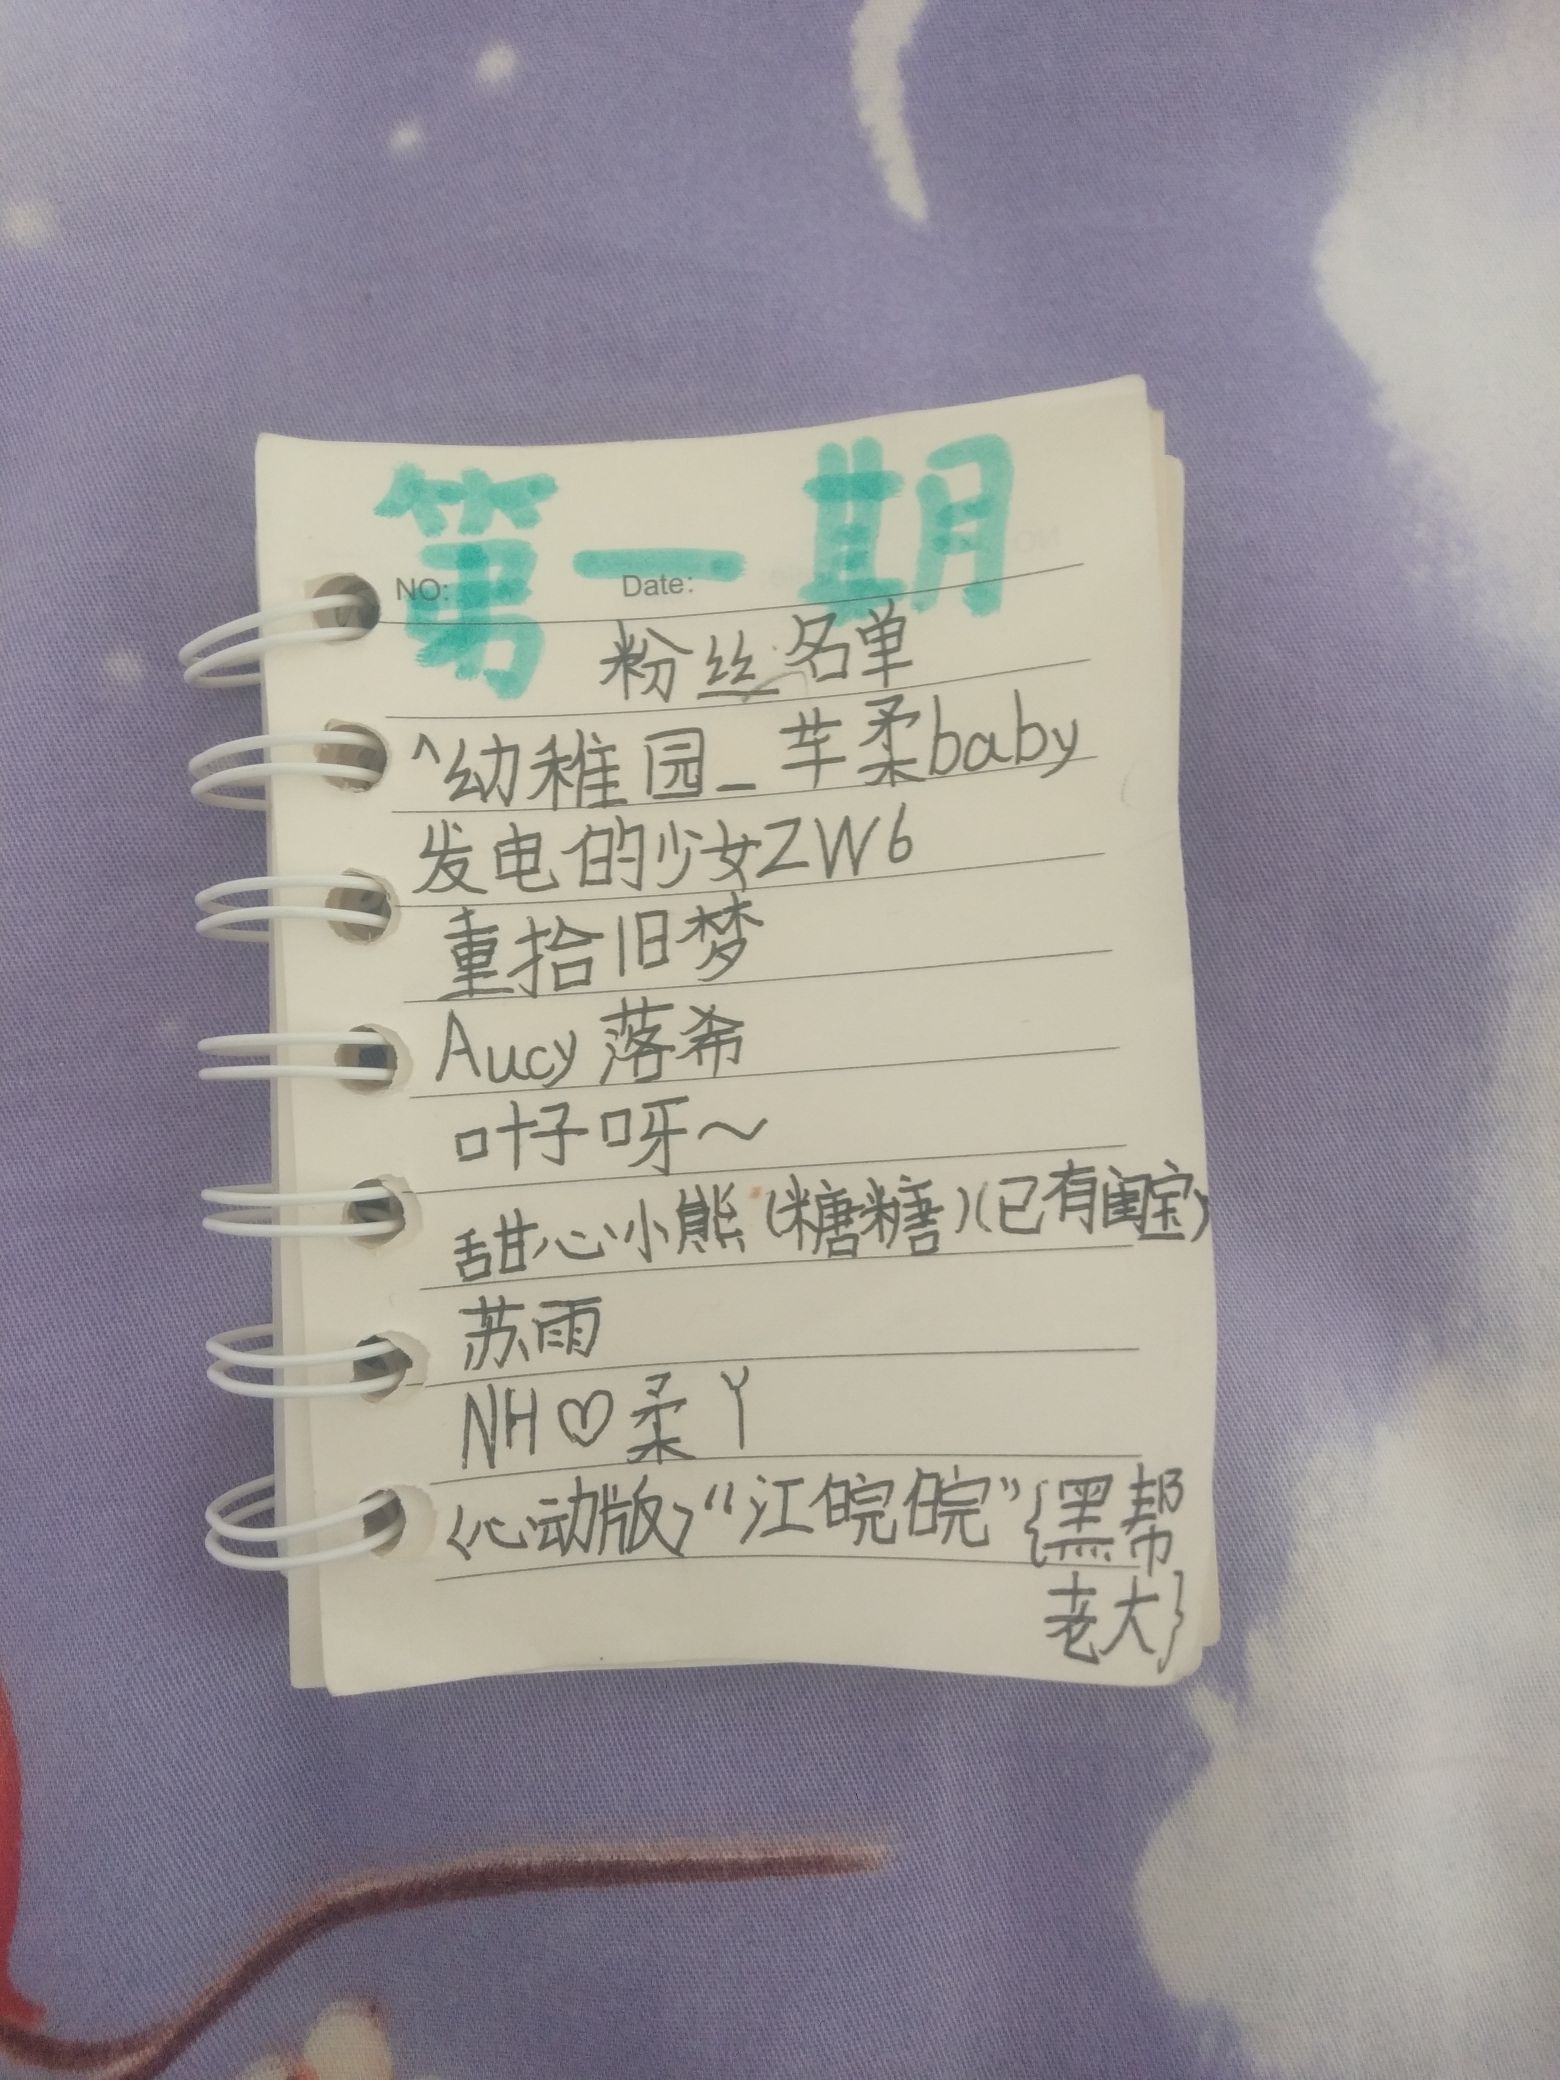 第一期
NO: Date:
粉丝名单
^幼稚园_芊柔baby
发电的少女ZW6
重拾旧梦
Aucy落希
叶子呀～
甜心小熊(糖糖)(已有闺宝)
苏雨
NH♡柔丫
〈心动版〉“江皖皖”{黑帮
老大}